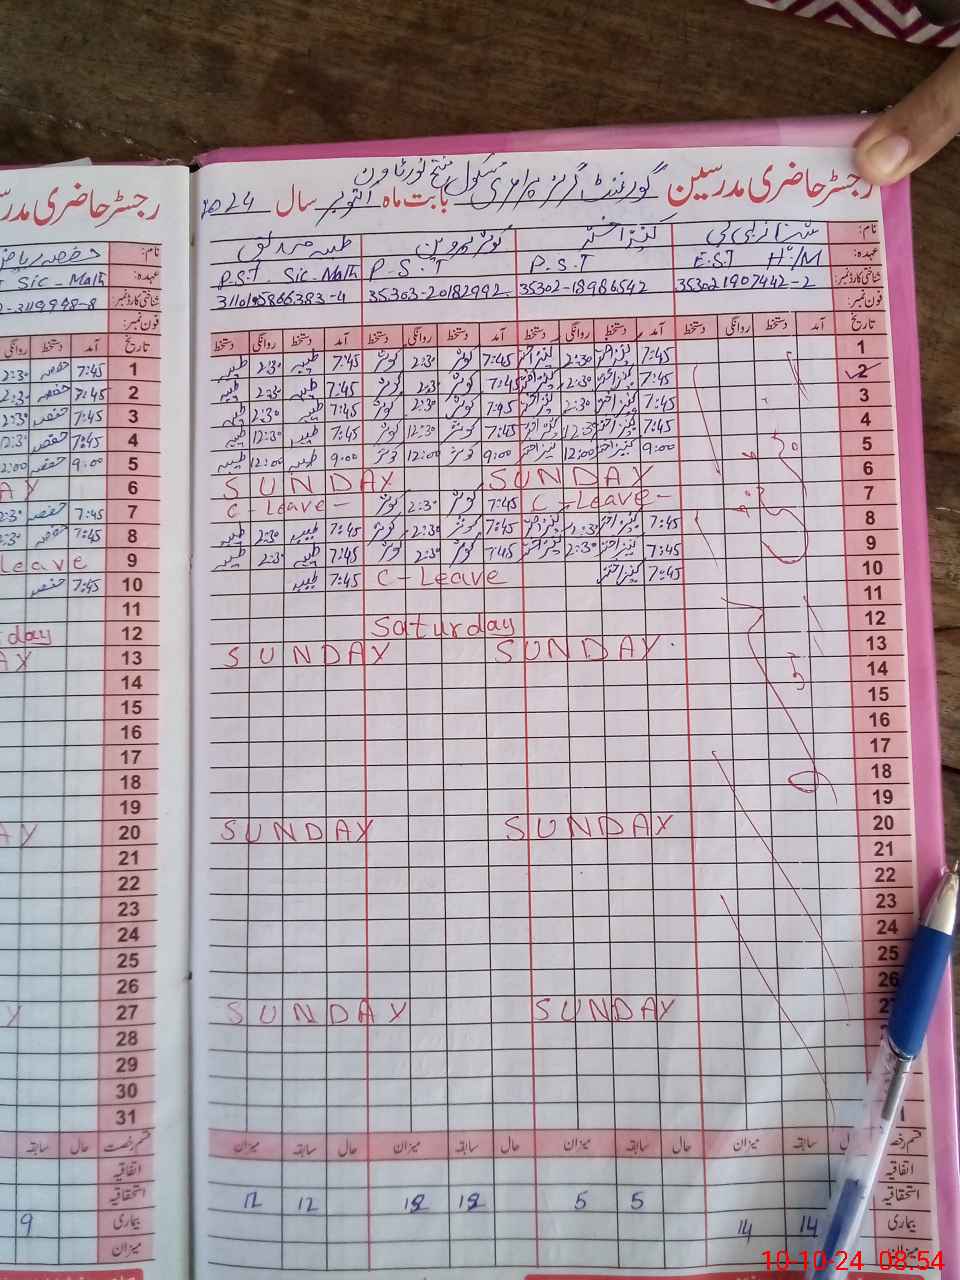 رجسٹر حاضری مدرسین گورنمنٹ گرلز پرائمری سکول فتح نور ٹاون بابت ماہ اکتوبر سال 2024
نام: شہناز بی بی کنیز اختر کوثر پروین طیبہ صدیق
عہدہ: E.S.T H/M P.S.T P.S.T P.S.T Sic-Math
شناختی کارڈ نمبر: 35302-18986542 35303-20182992
فون نمبر:
تاریخ آمد دستخط روانگی دستخط آمد دستخط روانگی دستخط آمد دستخط روانگی دستخط آمد دستخط روانگی دستخط
1 7:45 کنیز اختر 2:30 کنیز اختر 7:45 کوثر 2:30 کوثر 7:45 طیبہ 2:30 طیبہ
2 7:45 کنیز اختر 2:30 کنیز اختر 7:45 کوثر 2:30 کوثر 7:45 طیبہ 2:30 طیبہ
3 7:45 کنیز اختر 2:30 کنیز اختر 7:45 کوثر 2:30 کوثر 7:45 طیبہ 2:30 طیبہ
4 7:45 کنیز اختر 12:30 کنیز اختر 7:45 کوثر 12:30 کوثر 7:45 طیبہ 12:30 طیبہ
5 9:00 کنیز اختر 12:00 کنیز اختر 9:00 کوثر 12:00 کوثر 9:00 طیبہ 12:00 طیبہ
6 SUNDAY SUNDAY
7 C-Leave- 7:45 کوثر 2:30 کوثر C-Leave-
8 7:45 کنیز اختر 2:30 کنیز اختر 7:45 کوثر 2:30 کوثر 7:45 طیبہ 2:30 طیبہ
9 7:45 کنیز اختر 2:30 کنیز اختر 7:45 کوثر 2:30 کوثر 7:45 طیبہ 2:30 طیبہ
10 7:45 کنیز اختر C-Leave 7:45 طیبہ
11
12 Saturday
13 SUNDAY SUNDAY
14
15
16
17
18
19
20 SUNDAY SUNDAY
21
22
23
24
25
26
27 SUNDAY SUNDAY
28
29
30
31
قسم رخصت حال سابقہ میزان حال سابقہ میزان حال سابقہ میزان سابقہ میزان
اتفاقیہ
استحقاقیہ 5 5 12 12 12 12
بیماری 14 14
میزان
رجسٹر حاضری
نام: حفصہ ریاض
عہدہ: Sic-Math
شناختی کارڈ نمبر:
فون نمبر:
تاریخ آمد دستخط روانگی
1 7:45 حفصہ 2:30
2 7:45 حفصہ 2:30
3 7:45 حفصہ 2:30
4 7:45 حفصہ 12:30
5 9:00 حفصہ 12:00
6 AY
7 7:45 حفصہ 2:30
8 7:45 حفصہ 2:30
9 Leave
10 7:45 حفصہ
11
12 day
13 AY
14
15
16
17
18
19
20 AY
21
22
23
24
25
26
27 Y
28
29
30
31
قسم رخصت حال سابقہ
اتفاقیہ
استحقاقیہ
بیماری 9
میزان
10-10-24 08:54